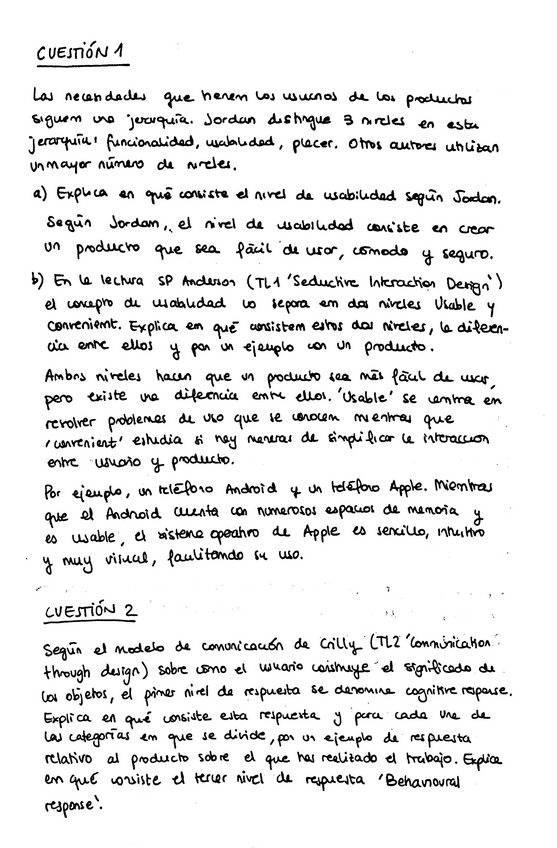 CUESTIÓN 1
Las necesidades que tienen los usuarios de los productos
siguen una jerarquía. Jordan distingue 3 niveles en esta
jerarquía: funcionalidad, usabilidad, placer. Otros autores utilizan
un mayor número de niveles.
a) Explica en qué consiste el nivel de usabilidad según Jordan.
Según Jordan, el nivel de usabilidad consiste en crear
un producto que sea fácil de usar, cómodo y seguro.
b) En la lectura SP Anderson (TL1 'Seductive Interaction Design')
el concepto de usabilidad lo separa en dos niveles Usable y
Convenient. Explica en qué consisten estos dos niveles, la diferen-
cia entre ellos y pon un ejemplo con un producto.
Ambos niveles hacen que un producto sea más fácil de usar,
pero existe una diferencia entre ellos. 'Usable' se centra en
resolver problemas de uso que se conocen mientras que
'convenient' estudia si hay maneras de simplificar la interacción
entre usuario y producto.
Por ejemplo, un teléfono Android y un teléfono Apple. Mientras
que el Android cuenta con numerosos espacios de memoria y
es usable, el sistema operativo de Apple es sencillo, intuitivo
y muy visual, facilitando su uso.
CUESTIÓN 2
Según el modelo de comunicación de Crilly (TL2 'Communication
through design) sobre cómo el usuario construye el significado de
los objetos, el primer nivel de respuesta se denomina cognitive response.
Explica en qué consiste esta respuesta y para cada una de
las categorías en que se divide, pon un ejemplo de respuesta
relativo al producto sobre el que has realizado el trabajo. Explica
en qué consiste el tercer nivel de respuesta 'Behavioural
response'.